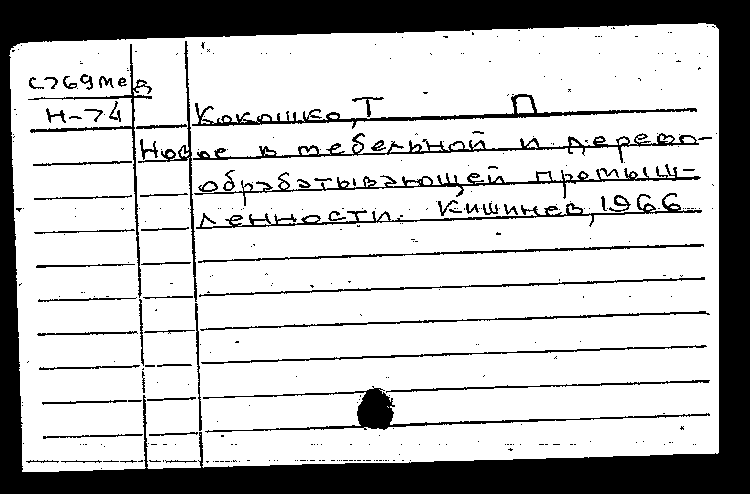 С769мев
Н-74
Кокошко, Т П
Новое в мебельной и дерево-
обрабатывающей промыш-
ленности. Кишинев, 1966